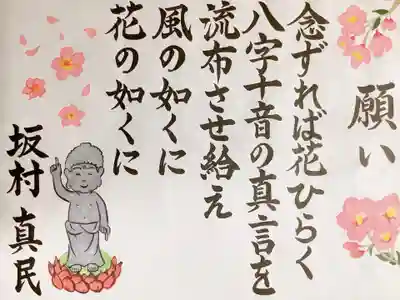 願い
念ずれば花ひらく
八字十音の真言を
流布させ給え
風の如くに
花の如くに
坂村 真民